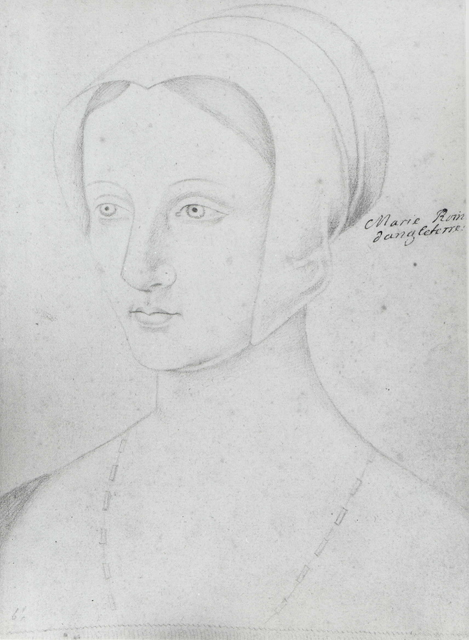 Marie Roin
d'angleterre.